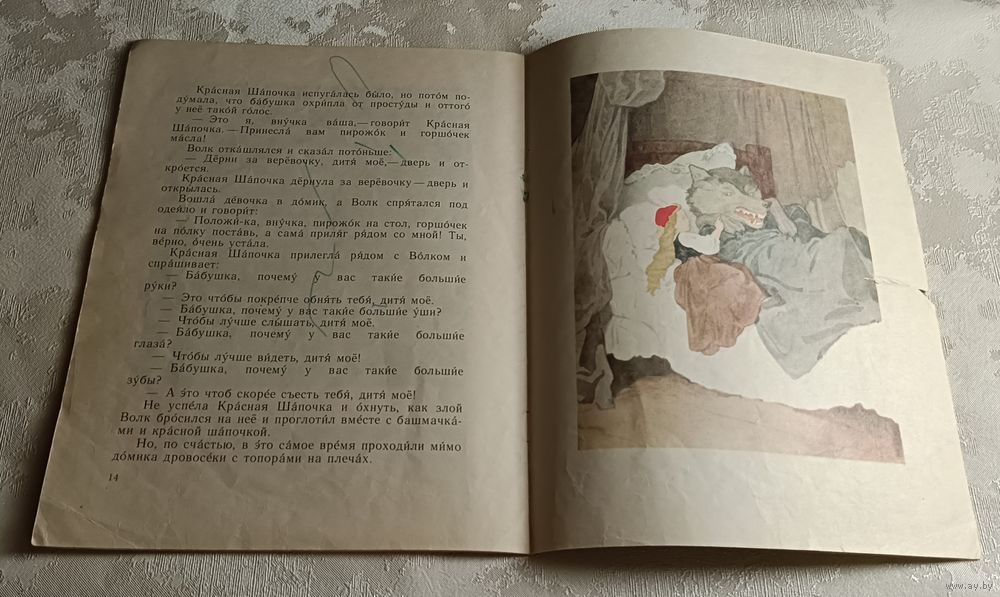 Кра́сная Ша́почка испуга́лась бы́ло, но пото́м по-
ду́мала, что ба́бушка охри́пла от просту́ды и оттого́
у неё тако́й го́лос.
— Э́то я, вну́чка ва́ша,— говори́т Кра́сная
Ша́почка.— Принесла́ вам пирожо́к и горшо́чек
ма́сла!
Волк отка́шлялся и сказа́л пото́ньше:
— Дёрни за верёвочку, дитя́ моё,— дверь и от-
кро́ется.
Кра́сная Ша́почка дёрнула за верёвочку — дверь и
откры́лась.
Вошла́ де́вочка в до́мик, а Волк спря́тался под
одея́ло и говори́т:
— Положи́-ка, вну́чка, пирожо́к на стол, горшо́чек
на по́лку поста́вь, а сама́ приля́г ря́дом со мной! Ты,
ве́рно, о́чень уста́ла.
Кра́сная Ша́почка прилегла́ ря́дом с Во́лком и
спра́шивает:
— Ба́бушка, почему́ у вас таки́е больши́е
ру́ки?
— Э́то что́бы покре́пче обня́ть тебя́, дитя́ моё.
— Ба́бушка, почему́ у вас таки́е больши́е у́ши?
— Что́бы лу́чше слы́шать, дитя́ моё.
— Ба́бушка, почему́ у вас таки́е больши́е
глаза́?
— Что́бы лу́чше ви́деть, дитя́ моё!
— Ба́бушка, почему́ у вас таки́е больши́е
зу́бы?
— А э́то чтоб скоре́е съесть тебя́, дитя́ моё!
Не успе́ла Кра́сная Ша́почка и о́хнуть, как злой
Волк бро́сился на неё и проглоти́л вме́сте с башмачка́-
ми и кра́сной ша́почкой.
Но, по сча́стью, в э́то са́мое вре́мя проходи́ли ми́мо
до́мика дровосе́ки с топора́ми на плеча́х.
14
www.ay.by